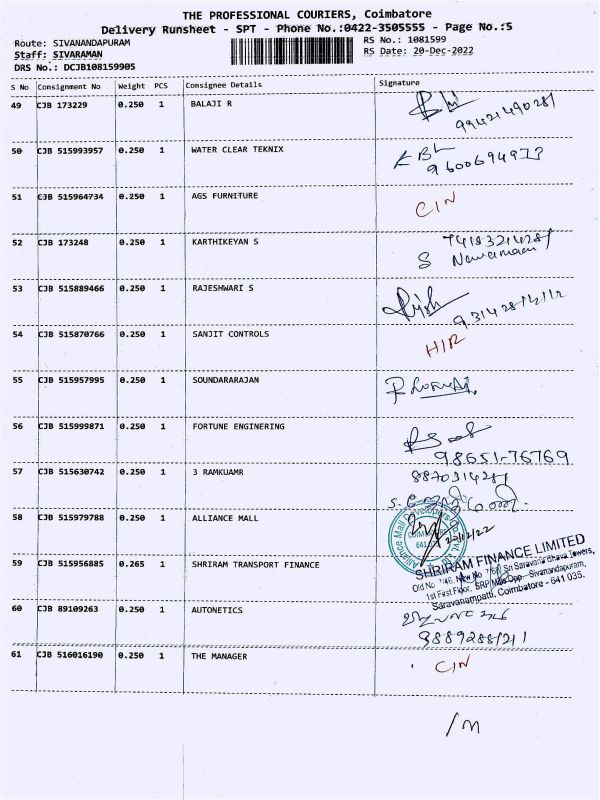 THE PROFESSIONAL COURIERS, Coimbatore
Delivery Runsheet - SPT - Phone No.:0422-3505555 - Page No.:5
Route: SIVANANDAPURAM
RS No.: 1081599
Staff: SIVARAMAN
RS Date: 20-Dec-2022
DRS No.: DCJB108159905
S No Consignment No Weight PCS Consignee Details Signature
49 CJB 173229 0.250 1 BALAJI R
50 CJB 515993957 0.250 1 WATER CLEAR TEKNIX
9600694973
51 CJB 515964734 0.250 1 AGS FURNITURE
CIN
52 CJB 173248 0.250 1 KARTHIKEYAN S
53 CJB 515889466 0.250 1 RAJESHWARI S
54 CJB 515870766 0.250 1 SANJIT CONTROLS
HIR
55 CJB 515957995 0.250 1 SOUNDARARAJAN
56 CJB 515999871 0.250 1 FORTUNE ENGINERING
98651-76769
57 CJB 515630742 0.250 1 3 RAMKUAMR
58 CJB 515979788 0.250 1 ALLIANCE MALL
Alliance Mall Developers
59 CJB 515956885 0.265 1 SHRIRAM TRANSPORT FINANCE
SHRIRAM FINANCE LIMITED
Old No 7/46, New No Sri Saravana Bhava Towers,
1st First Floor, SRP Mills Opp. Sivanandapuram,
Saravanampatti, Coimbatore - 641 035.
60 CJB 89109263 0.250 1 AUTONETICS
61 CJB 516016190 0.250 1 THE MANAGER
CIN